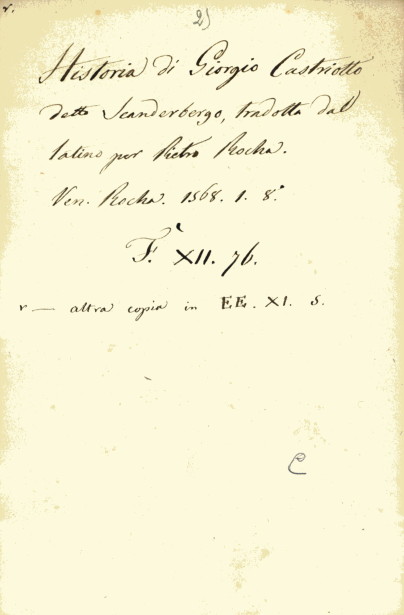 r.
2)
Historia di Giorgio Castriotto
detto Scanderbergo, tradotta dal
latino per Pietro Rocha.
Ven. Rocha. 1568. 1. 8.º
F. XII. 76.
r — altra copia in EE. XI. 5.
C